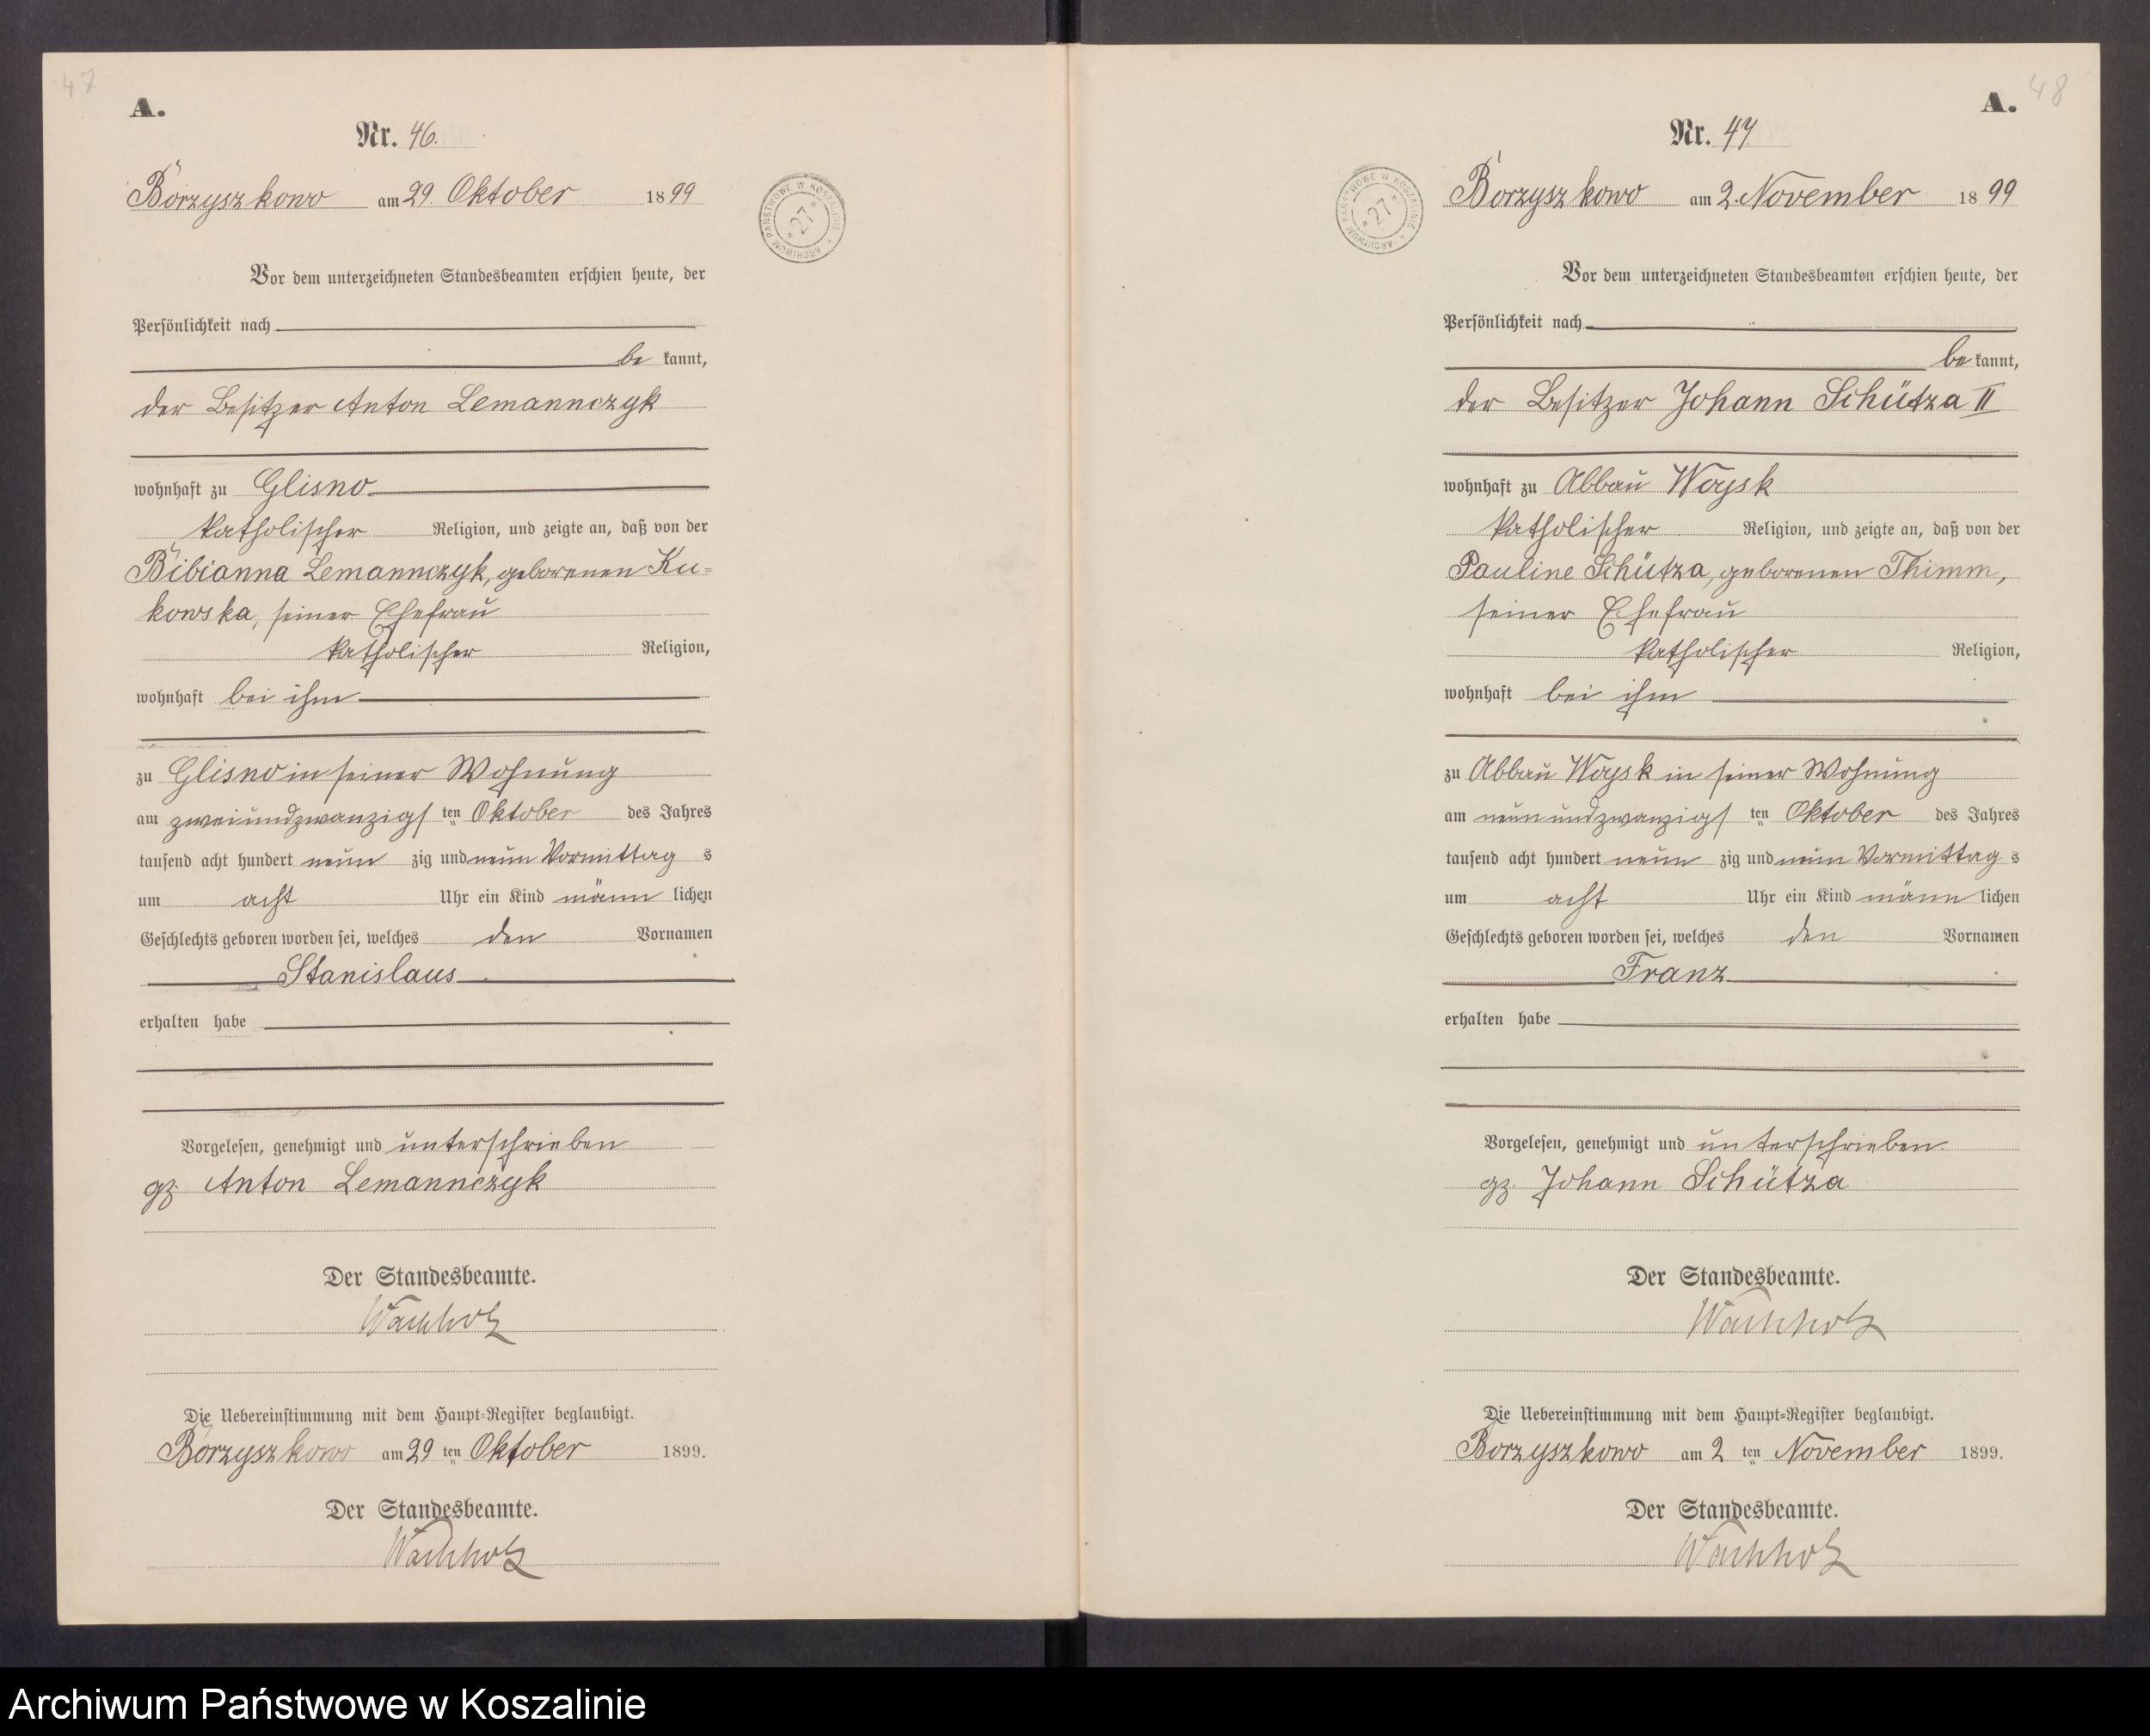 47
A.
Nr. 46.
Borzyszkowo am 29 Oktober 1899
ARCHIWUM PAŃSTWOWE W KOSZALINIE * 27 *
Vor dem unterzeichneten Standesbeamten erschien heute, der
Persönlichkeit nach
be kannt,
der Besitzer Anton Lemannczyk
wohnhaft zu Glisno
katholischer Religion, und zeigte an, daß von der
Bibianna Lemannczyk, geborenen Ku=
kowska, seiner Ehefrau
katholischer Religion,
wohnhaft bei ihm
zu Glisno in seiner Wohnung
am zweiundzwanzigsten Oktober des Jahres
tausend acht hundert neun zig und neun Vormittag s
um acht Uhr ein Kind männ lichen
Geschlechts geboren worden sei, welches den Vornamen
Stanislaus
erhalten habe
Vorgelesen, genehmigt und unterschrieben
gz. Anton Lemannczyk
Der Standesbeamte.
Wachholz
Die Uebereinstimmung mit dem Haupt=Register beglaubigt.
Borzyszkowo am 29 ten Oktober 1899.
Der Standesbeamte.
Wachholz
48
A.
Nr. 47
ARCHIWUM PAŃSTWOWE W KOSZALINIE * 27 *
Borzyszkowo am 2. November 1899
Vor dem unterzeichneten Standesbeamten erschien heute, der
Persönlichkeit nach
be kannt,
der Besitzer Johann Schütza II
wohnhaft zu Abbau Woysk
katholischer Religion, und zeigte an, daß von der
Pauline Schütza, geborenen Thimm,
seiner Ehefrau
katholischer Religion,
wohnhaft bei ihm
zu Abbau Woysk in seiner Wohnung
am neunundzwanzigsten Oktober des Jahres
tausend acht hundert neun zig und neun Vormittag s
um acht Uhr ein Kind männ lichen
Geschlechts geboren worden sei, welches den Vornamen
Franz
erhalten habe
Vorgelesen, genehmigt und unterschrieben
gz. Johann Schütza
Der Standesbeamte.
Wachholz
Die Uebereinstimmung mit dem Haupt=Register beglaubigt.
Borzyszkowo am 2 ten November 1899.
Der Standesbeamte.
Wachholz
Archiwum Państwowe w Koszalinie